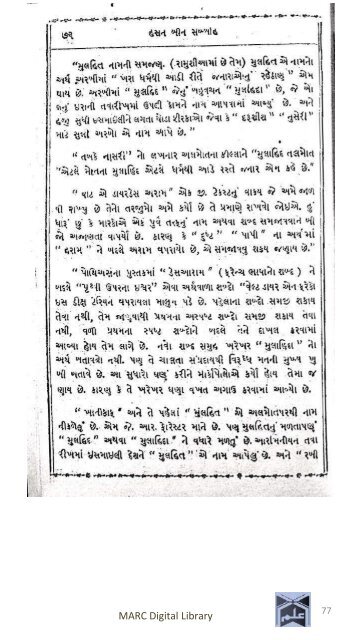 ૭૨ હસન બીન સબ્બાહ
"મુલહિત નામની સમજણ. (રામુસીઆમાં છે તેમ) મુલહિત એ નામનો
અર્થ અરબીમાં "ખરા ધર્મથી આડી રીતે જનારાઓનું રહેઠાણ" એમ
થાય છે. અરબીમાં "મુલહિદ" જેનું બહુવચન "મુલહિદા" છે, જે એ
ઇરાની તવારીખમાં ઉપલી કોમને નામ આપવામાં આવ્યું છે. અને
હજી સુધી ઇસમાઇલીને લગતા થોડા ફીરકાઓ જેવા કે "દરૂઝીસ" "નુસેરી"
માટે સુન્ની અરબો એ નામ આપે છે."
"તબકે નાસરી" નો લખનાર અલમોતના કીલ્લાને "મુલાહિદ તલમોત
"એટલે મોતના મુલાહિદ એટલે ધર્મથી આડે રસ્તે જનાર એમ કહે છે."
"વાટ એ ડાયરેક્સ અરામ" એક જી. ટેક્સ્ટનું વાક્ય જે અમે જાળ
વી રાખ્યું છે તેનો તરજુમો અમે કર્યો છે તે પ્રમાણે રાખવો જોઇએ. હું
ધારૂં છું કે મારકોએ એક પૂર્વ તરફનું નામ અથવા શબ્દ સમજાવવાને બી
જો અજાણતા વાપર્યો છે. કારણ કે "દુષ્ટ" "પાપી" ના અર્થમાં
"હરામ" ને બદલે અરામ વપરાયો છે, એ સમજાવવું શક્ય જણાય છે."
"પૌથિઅર્સના પુસ્તકમાં "ડેસઆરામ" (ફ્રેન્ચ ભાષાનો શબ્દ) ને
બદલે "પૃથ્વી ઉપરના ઇશ્વર" એવા અર્થવાળા શબ્દો "વેલ્ટ ડાયર એન ફ્રેંકો
ઇસ ડીક્ષ ટેરિયન વપરાયલા માલુમ પડે છે. પહેલાના શબ્દો સમજી શકાય
તેવા નથી, તેમ જાણવાથી પ્રથમના અસ્પષ્ટ શબ્દો સમજી શકાય તેવા
નથી, વળી પ્રથમના સ્પષ્ટ શબ્દોને બદલે તેને દાખલ કરવામાં
આવ્યા હોય તેમ લાગે છે. નવો શબ્દ સમુહ ખરેખર "મુલાહિદા" નો
અર્થ બતાવતો નથી. પણ તે ચાલતા સંપ્રદાયથી વિરૂદ્ધ મતની મુખ્ય ખુ
બી બતાવે છે. આ સુધારો ઘણું કરીને માર્કોપોલોએ કર્યો હોય તેમ જ
ણાય છે. કારણ કે તે ખરેખર ઘણા વખત અગાઉ કરવામાં આવ્યો છે.
"ખાનીકાફ" અને તે પહેલાં "મુલહિત" એ અલમોતપરથી નામ
નીકળેલું છે. એમ જે. આર. ફોરેસ્ટર માને છે. પણ મુલહિતનું મળતાપણું
"મુલહિદ" અથવા "મુલાહિદા" ને વધારે મળતું છે. આરમિનીયન તવા
રીખમાં ઇસમાઇલી દેશને "મુલહિત" એ નામ આપેલું છે. અને "રબી
MARC Digital Library
77